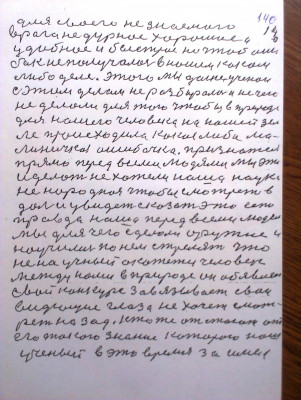 140
для своего не знаемого
врага не дурное хорошее
удобное и быстрое но чтобы он
так не получался в нашем каком
либо деле. Этого мы даже ученой
с этим делом не разбирался и ничего
не делали для того чтобы в природе
для нашего человека на нашей зем
ле происходила какая либо ма
ленькая ошибочка. признаться
прямо перед всеми людями мы это
и делать не хотели наша наука
не народная чтобы смотреть в
дал и увидеть сказать это есть
правда наша перед всеми людями
мы для чего сделали оружие и
научились по нем стрелять что
не научный а к этим человек
между нами в природе он объявляет
свой конкурс завязывает свои
видющие глаза не хочет смот
рет назад. кто же от такого от
его такого знание которого наш
ученый в это время за имел